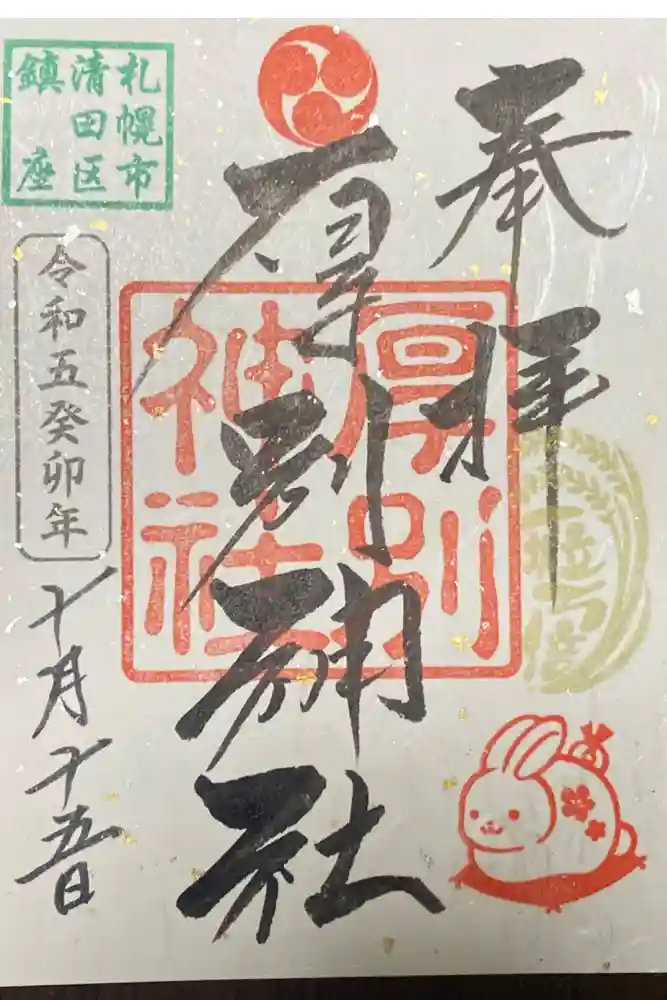 奉拝
厚別神社
厚別
神社
札幌市
清田区
鎮座
令和五癸卯年
十月十五日